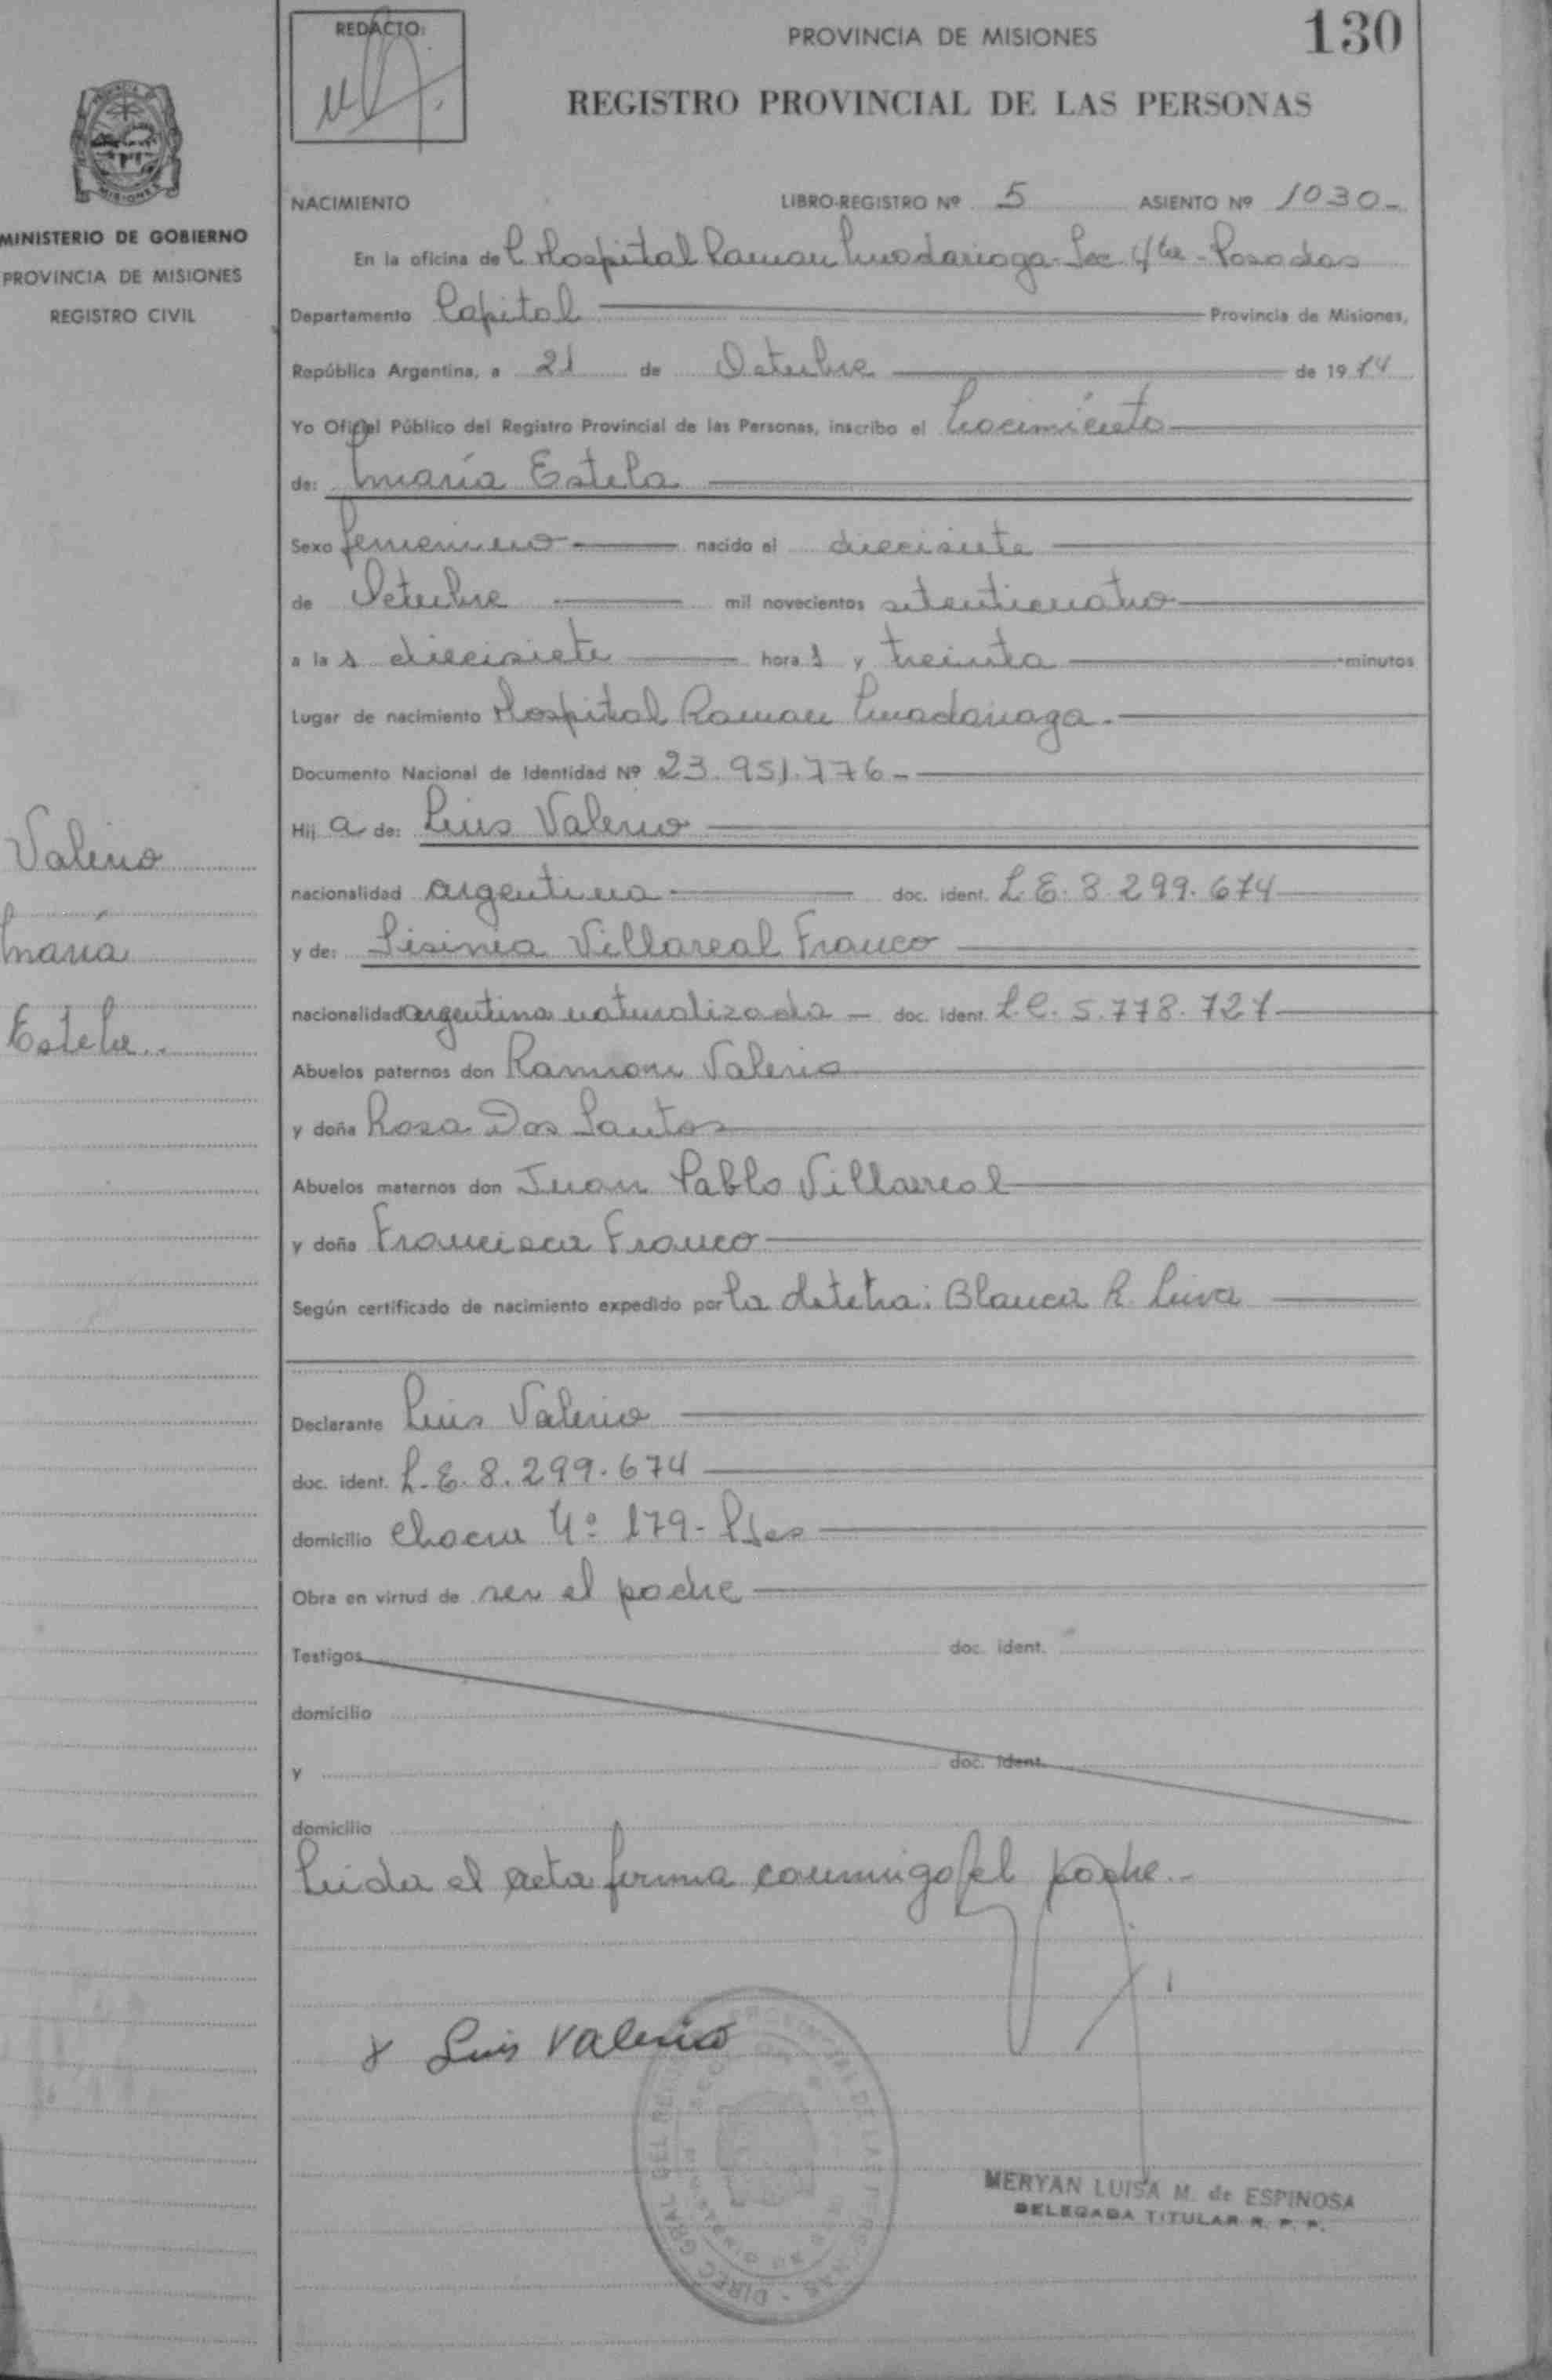 REDACTO:
PROVINCIA DE MISIONES
130
REGISTRO PROVINCIAL DE LAS PERSONAS
MISIONES
MINISTERIO DE GOBIERNO
PROVINCIA DE MISIONES
REGISTRO CIVIL
NACIMIENTO LIBRO-REGISTRO Nº 5 ASIENTO Nº 1030-
En la oficina del Hospital Ramon Madariaga - Sec 4ta - Posadas
Departamento Capital Provincia de Misiones,
República Argentina, a 21 de Octubre de 1974
Yo Oficial Público del Registro Provincial de las Personas, inscribo el Nacimiento
de: María Estela
Sexo femenino nacido el diecisiete
de Octubre mil novecientos setenticuatro
a las diecisiete horas y treinta minutos
Lugar de nacimiento Hospital Ramon Madariaga.
Documento Nacional de Identidad Nº 23.951.776-
Hija de: Luis Valerio
nacionalidad argentina doc. ident. L.E. 8.299.674
y de: Sisinia Villareal Franco
nacionalidad argentina naturalizada - doc. ident. L.C. 5.778.727
Abuelos paternos don Ramon Valerio
y doña Rosa Dos Santos
Abuelos maternos don Juan Pablo Villareal
y doña Francisca Franco
Según certificado de nacimiento expedido por la obstetra: Blanca R. Leiva
Valerio
María
Estela
Declarante Luis Valerio
doc. ident. L.E. 8.299.674
domicilio Chacra Nº 179 - Pdas
Obra en virtud de ser el padre
Testigos doc. ident.
domicilio
y doc. ident.
domicilio
Leida el acta firma conmigo el padre.-
x Luis Valerio
MERYAN LUISA M. de ESPINOSA
DELEGADA TITULAR R. P. P.